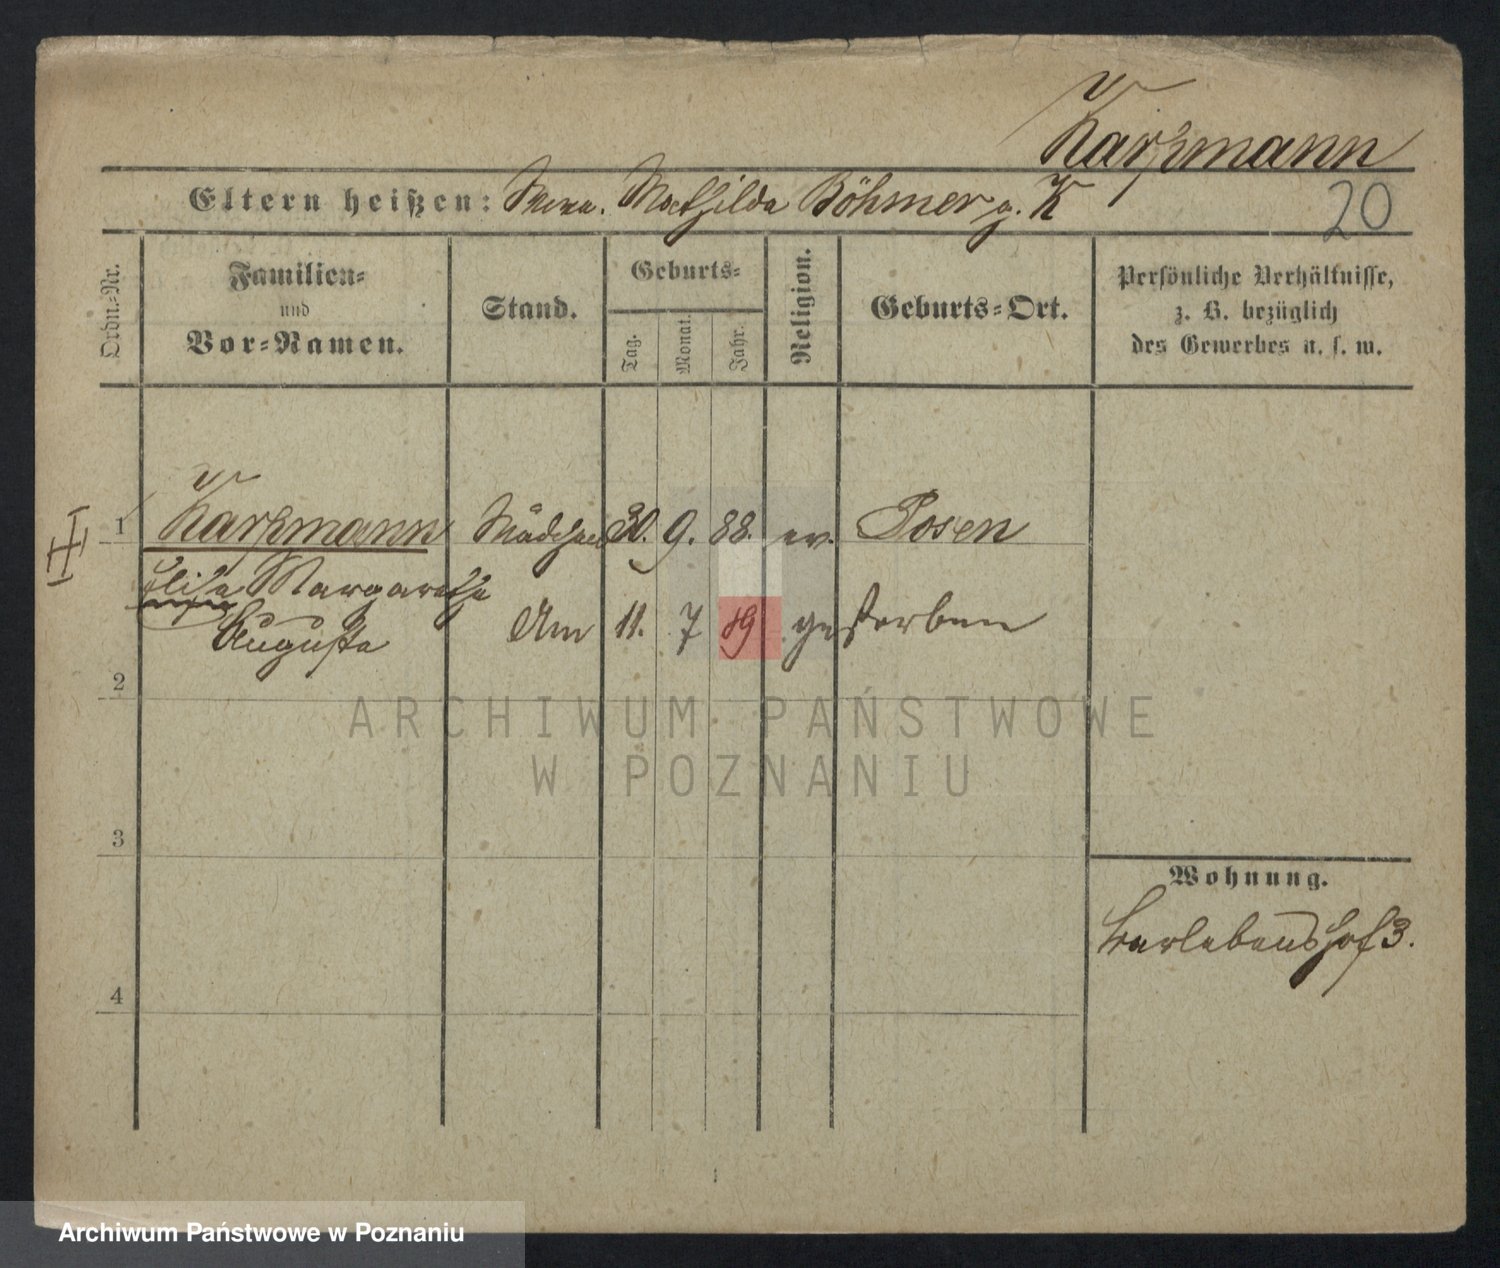 Karzmann
Eltern heißen: Mathilda Böhmer g. K
20
Ordn.-Nr.
Familien-
und
Vor-Namen.
Stand.
Geburts-
Tag.
Monat.
Jahr.
Religion.
Geburts-Ort.
Persönliche Verhältnisse,
z. B. bezüglich
des Gewerbes u. s. w.
1 Karzmann Mädchen 30. 9. 88. ev. Posen
Elisa Margarethe
Augusta
Am 11. 7 89 gestorben
2
ARCHIWUM PAŃSTWOWE
W POZNANIU
3
Wohnung.
Karlebenshof 3.
4
Archiwum Państwowe w Poznaniu